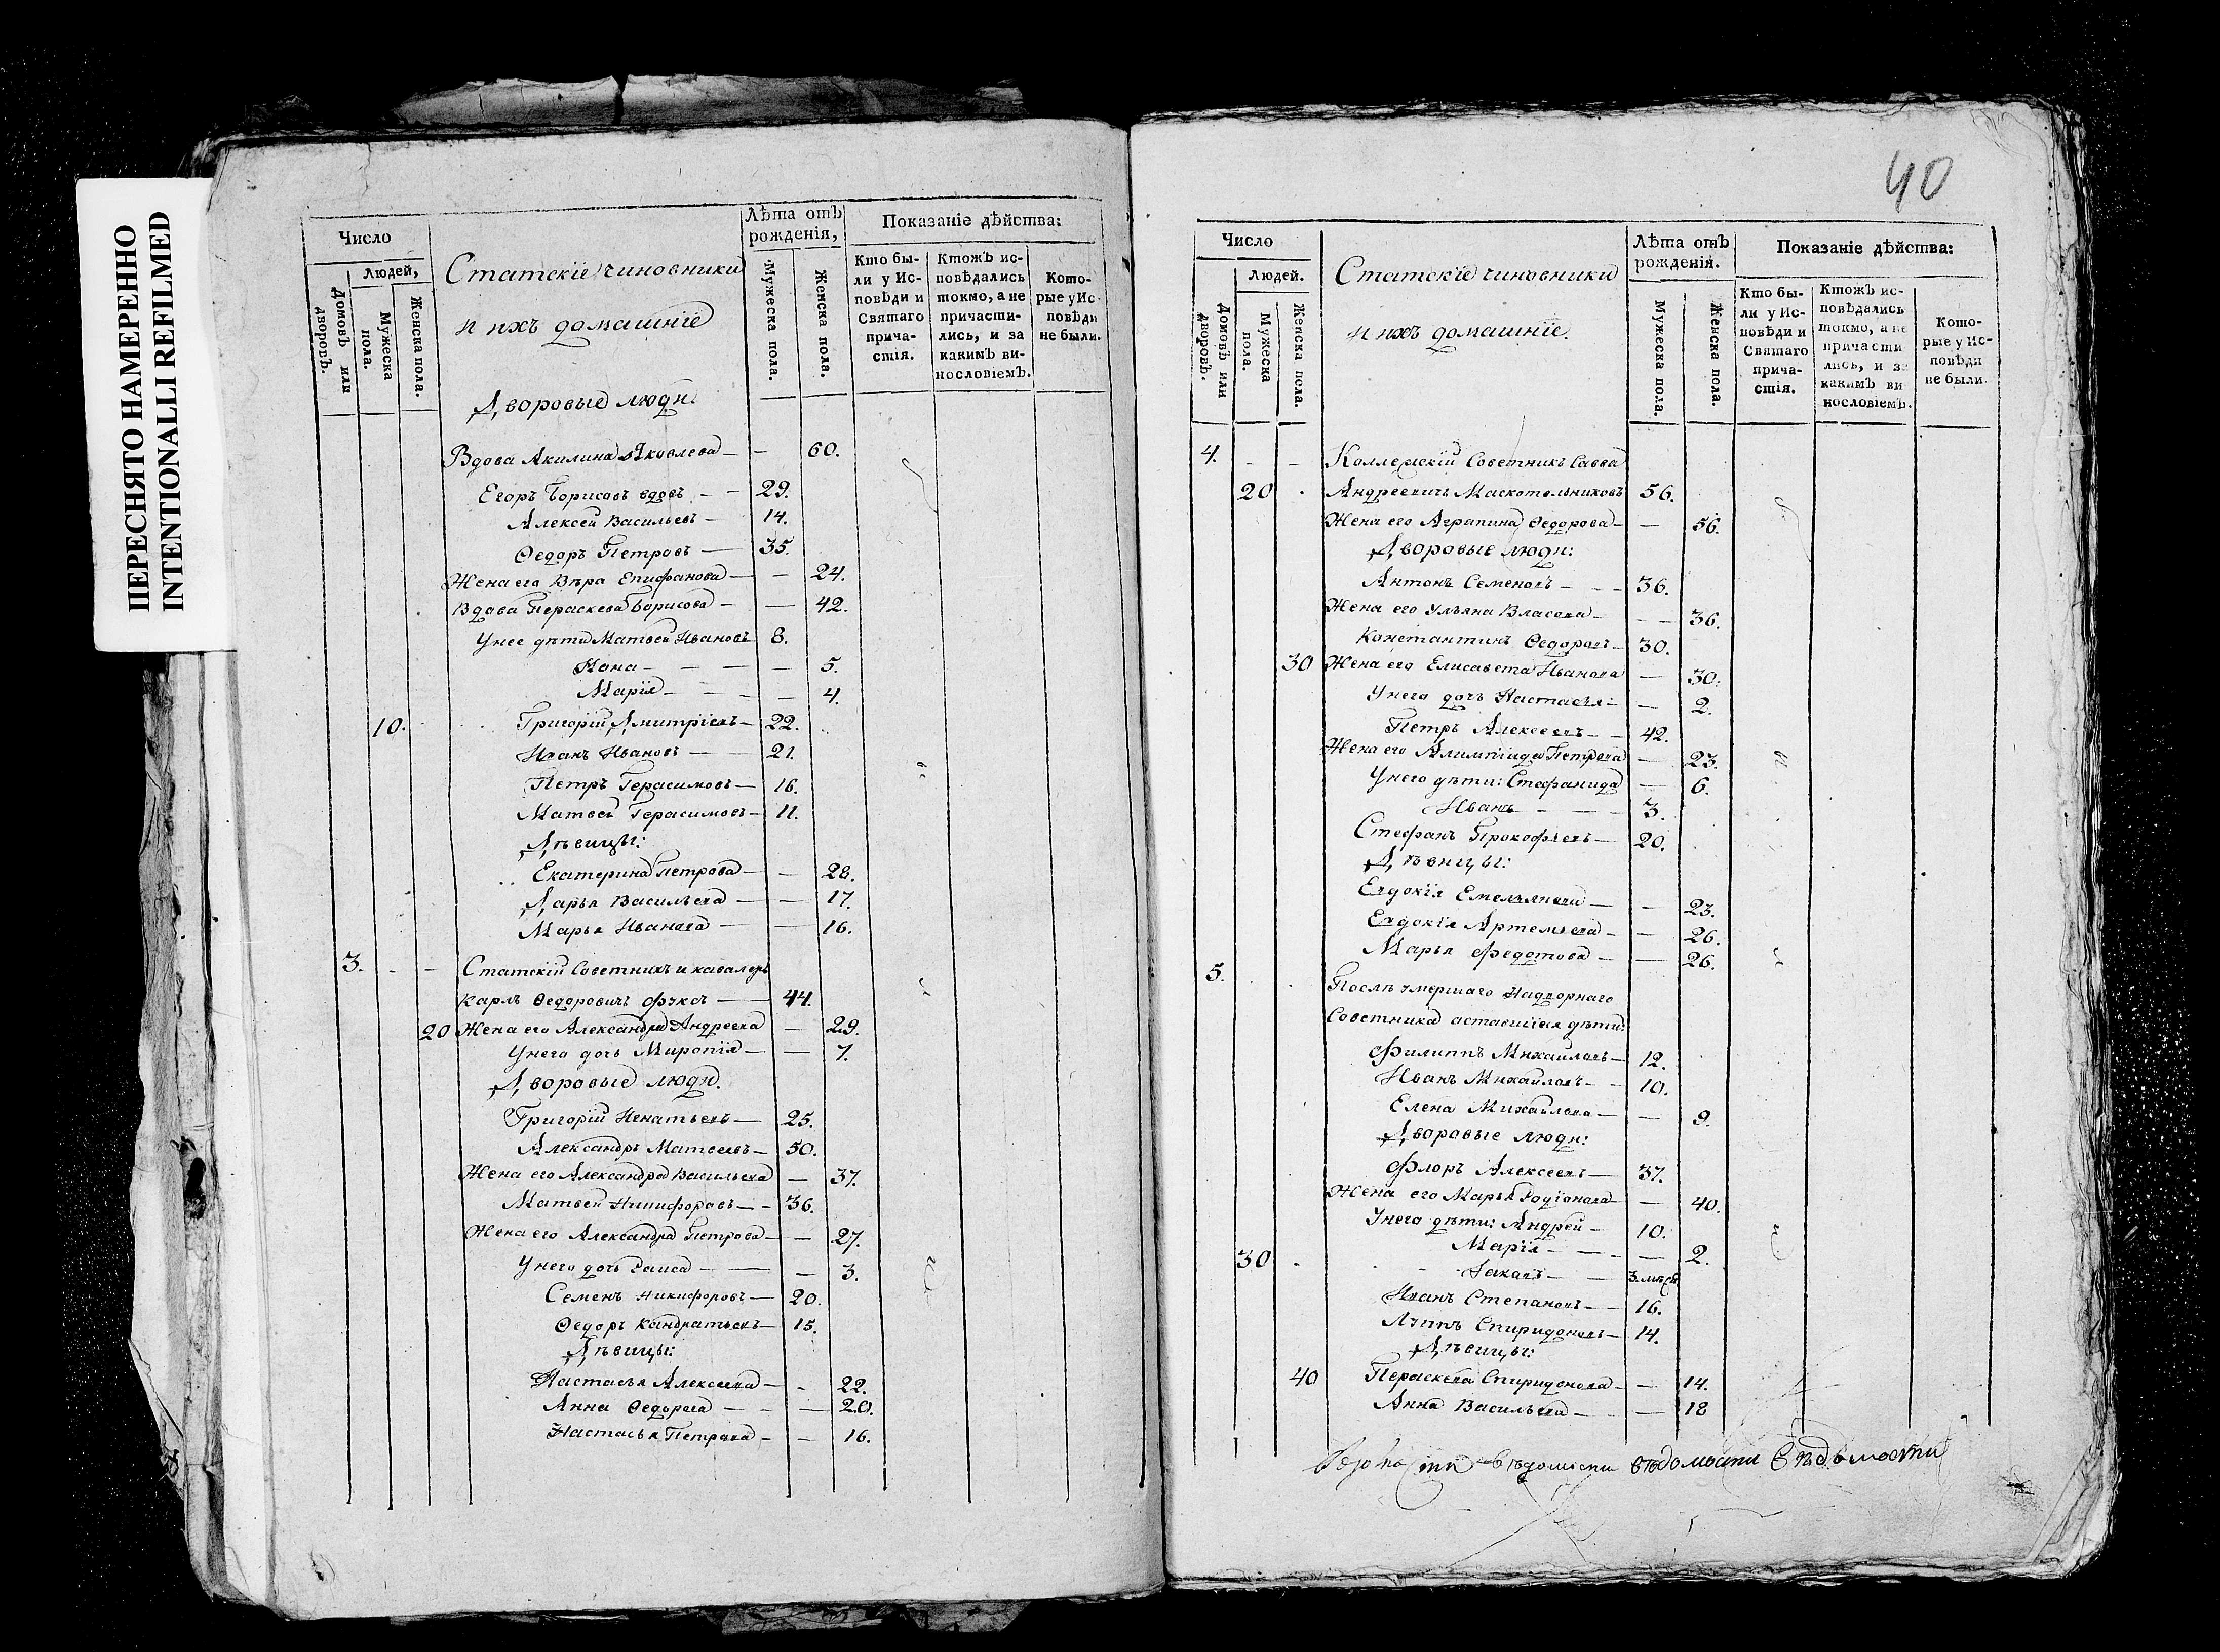 ПЕРЕСНЯТО НАМЕРЕННО
INTENTIONALLI REFILMED
Число
Людей,
Домовъ или дворовъ.
Мужеска пола.
Женска пола.
Статскіе чиновники
и ихъ домашніе
Дворовые люди
Лѣта отъ рожденія,
Мужеска пола.
Женска пола.
Показаніе дѣйства:
Кто были у Исповѣди и Святаго причастія.
Ктожъ исповѣдались токмо, а не причастились, и за какимъ винословіемъ.
Которые у Исповѣди не были.
Вдова Акилина Яковлева — — 60.
Егоръ Борисовъ вдовъ — — 29.
Алексей Васильевъ — 14.
Ѳедоръ Петровъ — 35.
Жена его Вѣра Епифанова — — 24.
Вдова Пераскева Борисова — — 42.
У нее дѣти Матвей Ивановъ 8.
— — — 5.
Марія — — — 4.
10. Григорій Дмитріевъ — 22.
Иванъ Ивановъ — — 21.
Петръ Герасимовъ — 16.
Матвей Герасимовъ — 11.
Дѣвицы:
Екатерина Петрова — — 28.
Дарья Васильева — — 17.
Марья Иванова — — 16.
3. - - Статскій Советникъ и кавалеръ
Карлъ Ѳедоровичъ Фуксъ — 44.
20 Жена его Александра Андреева — 29.
У него дочь Миропія — — 7.
Дворовые люди.
Григорій Игнатьевъ — 25.
Александръ Матвеевъ — 50.
Жена его Александра Васильева — 37.
Матвей Никифоровъ — - 36.
Жена его Александра Петрова — — 27.
У него дочь Раиса — — — 3.
Семенъ Никифоровъ — 20.
Ѳедоръ Кандратьевъ — 15.
Дѣвицы:
Настасья Алексеева — - 22.
Анна Ѳедорова — - — 20.
Настасья Петрова — — 16.
40
Число
Людей.
Домовъ или дворовъ.
Мужеска пола.
Женска пола.
Статскіе чиновники
и ихъ домашніе.
Лѣта отъ рожденія.
Мужеска пола.
Женска пола.
Показаніе дѣйства:
Кто были у Исповѣди и Святаго причастія.
Ктожъ исповѣдались токмо, а не причастились, и за какимъ винословіемъ.
Которые у Исповѣди не были.
4. - - Коллежскій Советникъ Савва
20 Андреевичъ Москотельниковъ 56.
Жена его Аграпина Ѳедорова — — 56.
Дворовые люди:
Антонъ Семеновъ — - - 36.
Жена его Ульяна Власова — - - 36.
Константинъ Ѳедоровъ — 30.
30 Жена его Елисавета Иванова — 30.
У него дочь Настасья — — 2.
Петръ Алексеевъ — - 42.
Жена его Алимпіада Петрова — 23.
У него дѣти: Стефанида — 6.
Иванъ — — — 3.
Стефанъ Прокофьевъ — 20.
Дѣвицы:
Евдокія Емельянова — — 23.
Евдокія Артемьева — — 26.
Марья Федотова — — 26.
5. Послѣ умершаго Надворнаго
Советника аставшіеся дѣти:
Филиппъ Михайловъ — 12.
Иванъ Михайловъ — - 10.
Елена Михайлова — — 9.
Дворовые люди:
Флоръ Алексеевъ — 37.
Жена его Марья Родіонова — — 40.
У него дѣти: Андрей — 10.
Марія — — - — 2.
30 Іаковъ — — 3. мѣся
Иванъ Степановъ — — 16.
Лупъ Спиридоновъ — 14.
Дѣвицы:
40 Пераскева Спиридонова — — 14.
Анна Васильева — — 18
вѣдомости вѣдомости вѣдомости